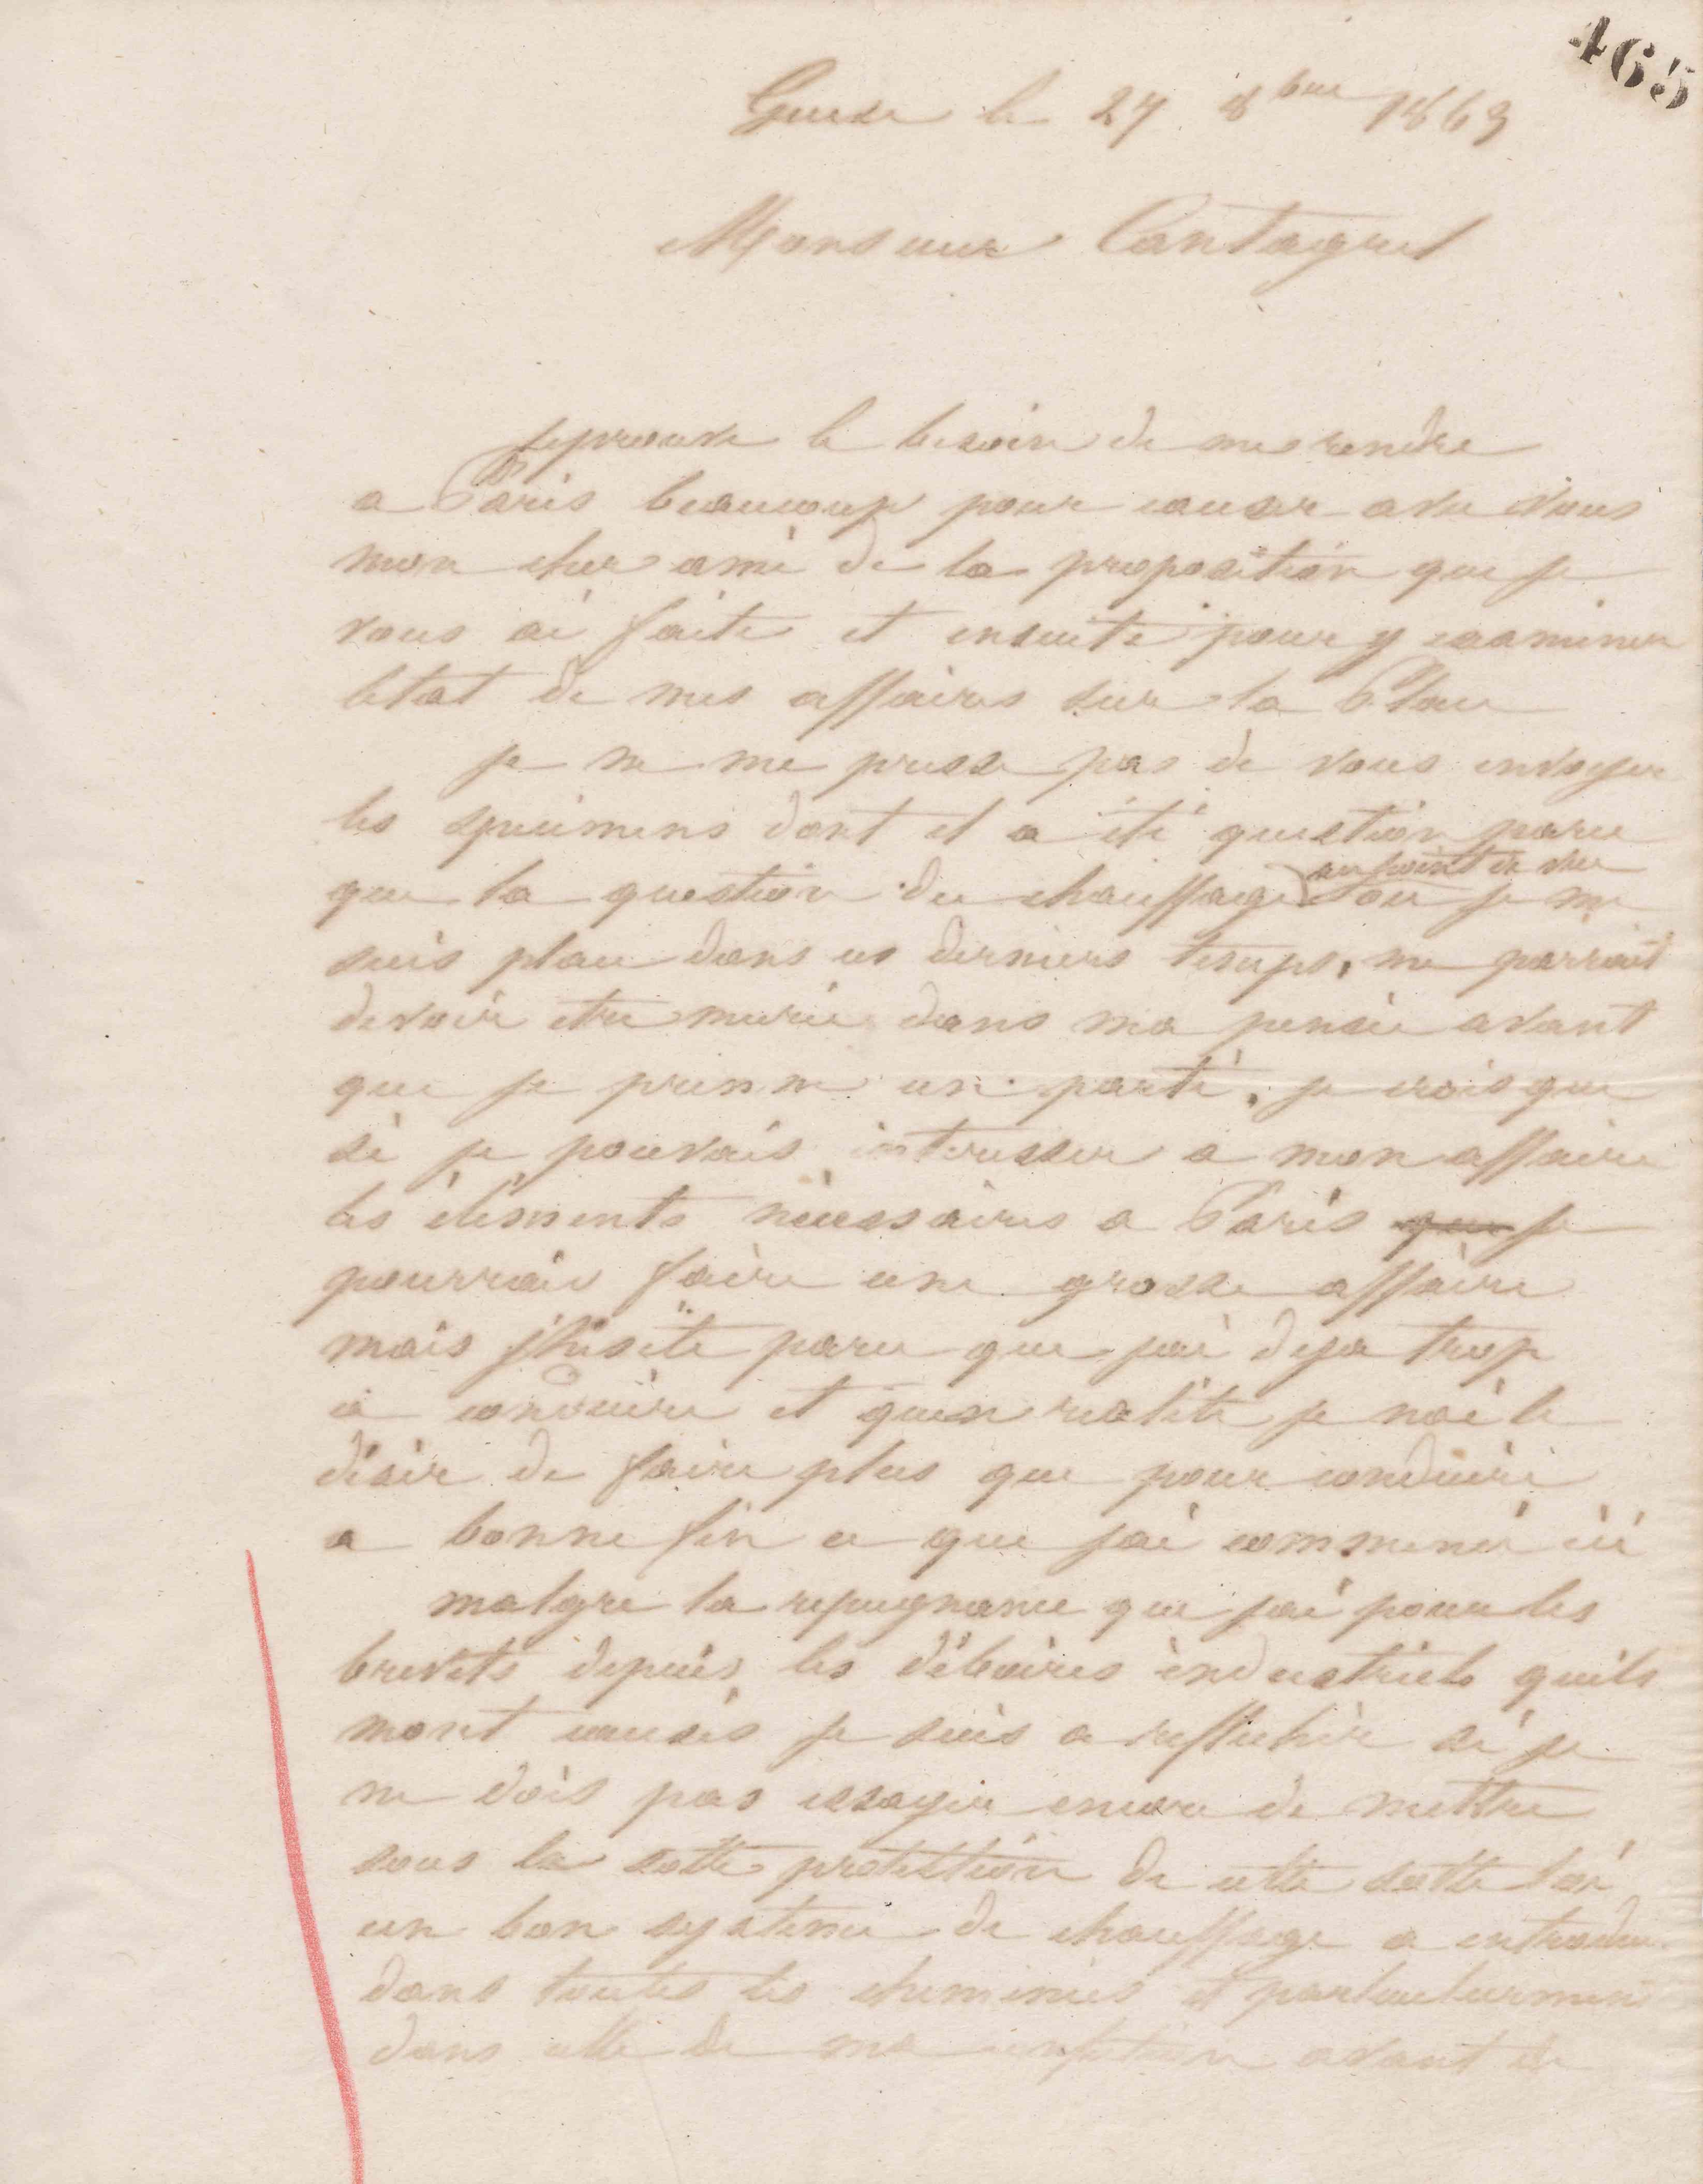 465
Guise le 27 8bre 1863
Monsieur Cantagrel
j'eprouve le besoin de me rendre
a Paris beaucoup pour causer avec vous
mon cher ami de la proposition que je
vous ai faite et ensuite pour y examiner
letat de mes affaires sur la Place
je ne me presse pas de vous envoyer
les specimens dont il a été question parce
que la question du chauffage au point de vue ou je me
suis placé dans ces derniers temps, me parrait
devoir etre murie dans ma pensée avant
que je prenne un parti. je crois que
si je pouvais interesser a mon affaire
les éléments nécessaires a Paris que je
pourrais faire une grosse affaire
mais j'hésite parce que jai deja trop
a conduire et quen realité je nai le
désir de faire plus que pour conduire
a bonne fin ce que jai commencé ici
malgre la repugnance que jai pour les
brevets depuis les déboires industriels quils
mont causés je suis a reflechir si je
ne dois pas essayer encore de mettre
sous la sotte protection de cette sotte loi
un bon systeme de chauffage a introduire
dans toutes les cheminées et particulierement
dans celle de ma avant de